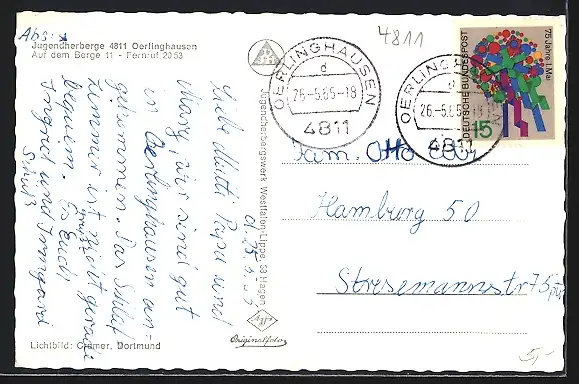 Abs.:
Jugendherberge 4811 Oerlinghausen
Auf dem Berge 11 - Fernruf 2053
4811
OERLINGHAUSEN
d
26.-5.65-18
4811
OERLINGHAUSEN
26.-5.65-18
4811
75 Jahre 1. Mai
DEUTSCHE BUNDESPOST
15
d. 25.5.65
Liebe Mutti Papa und
Marg, wir sind gut
in Oerlinghausen an-
gekommen. Das Schlaf
zimmer ist nicht gerade
bequem. Es grüßt Euch
Ingrid und Irmgard
Schulz
Jugendherbergswerk Westfalen-Lippe, 58 Hagen
Agfa
Originalfoto
Fam. Otto
Hamburg 50
Stresemannstr 75 ptr
Lichtbild: Cramer, Dortmund
5,-